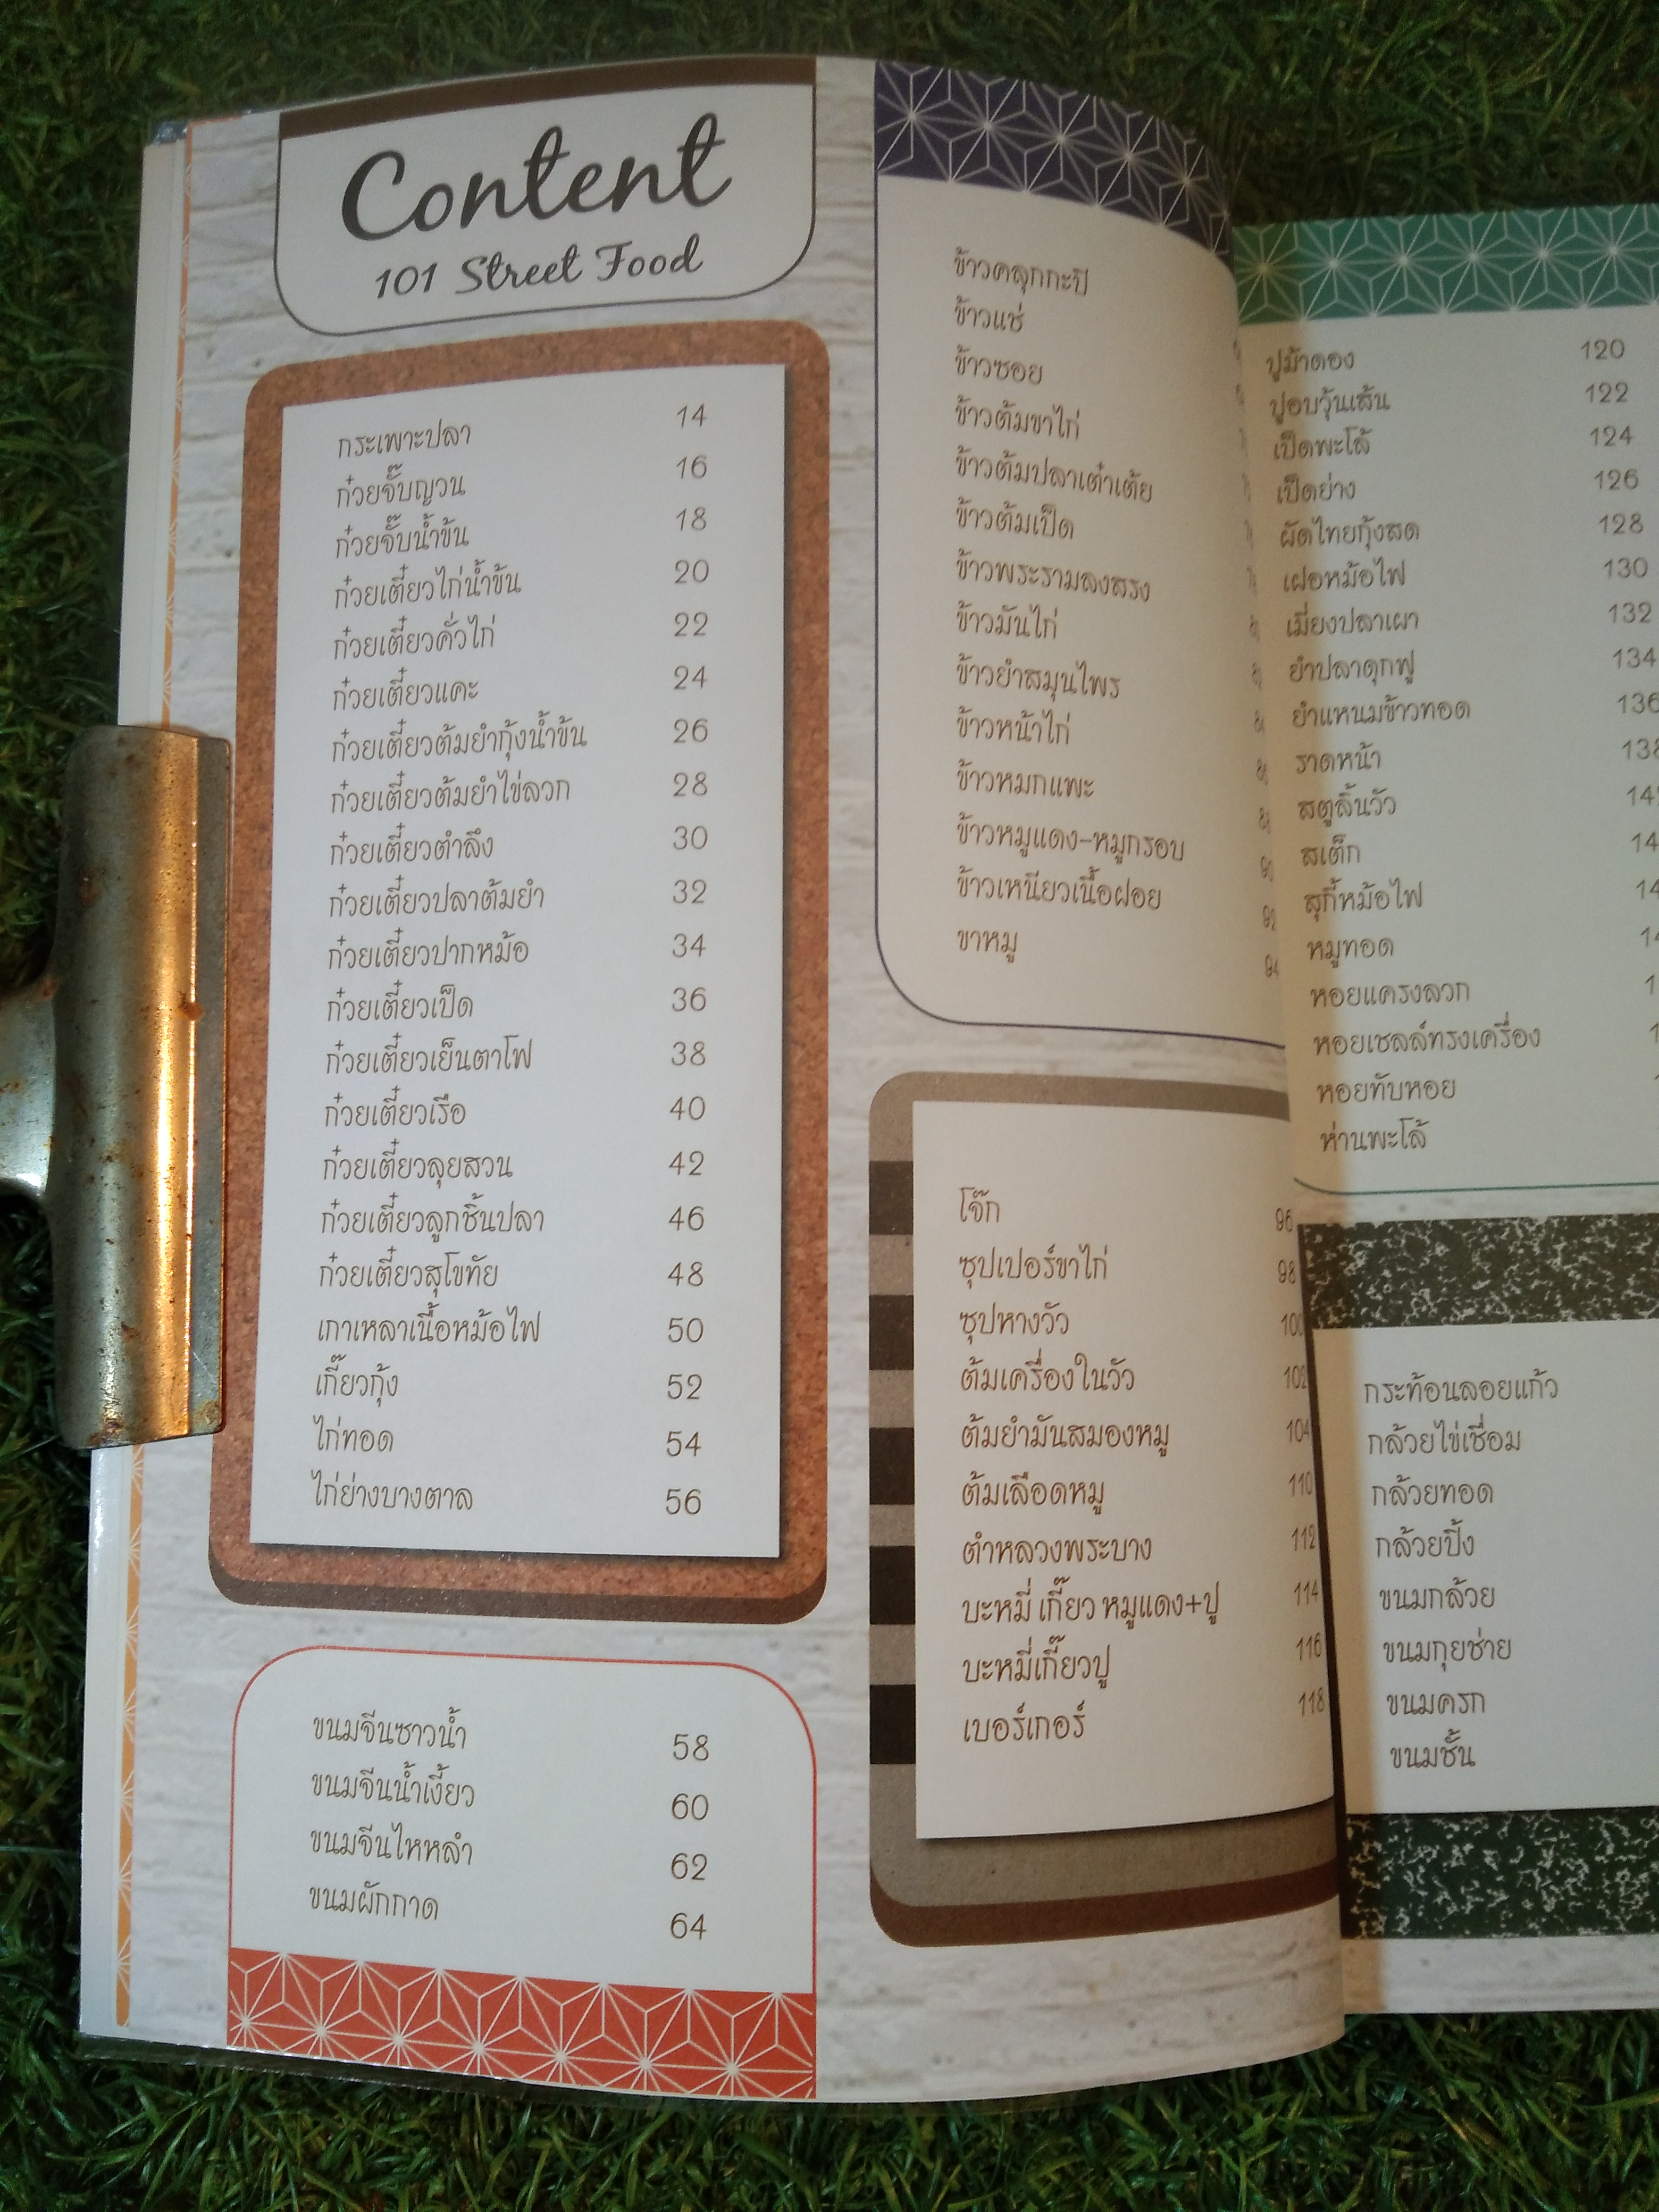 Content
101 Street Food
กระเพาะปลา 14
ก๋วยจั๊บญวน 16
ก๋วยจั๊บน้ำข้น 18
ก๋วยเตี๋ยวไก่น้ำข้น 20
ก๋วยเตี๋ยวคั่วไก่ 22
ก๋วยเตี๋ยวแคะ 24
ก๋วยเตี๋ยวต้มยำกุ้งน้ำข้น 26
ก๋วยเตี๋ยวต้มยำไข่ลวก 28
ก๋วยเตี๋ยวตำลึง 30
ก๋วยเตี๋ยวปลาต้มยำ 32
ก๋วยเตี๋ยวปากหม้อ 34
ก๋วยเตี๋ยวเป็ด 36
ก๋วยเตี๋ยวเย็นตาโฟ 38
ก๋วยเตี๋ยวเรือ 40
ก๋วยเตี๋ยวลุยสวน 42
ก๋วยเตี๋ยวลูกชิ้นปลา 46
ก๋วยเตี๋ยวสุโขทัย 48
เกาเหลาเนื้อหม้อไฟ 50
เกี๊ยวกุ้ง 52
ไก่ทอด 54
ไก่ย่างบางตาล 56
ขนมจีนซาวน้ำ 58
ขนมจีนน้ำเงี้ยว 60
ขนมจีนไหหลำ 62
ขนมผักกาด 64
ข้าวคลุกกะปิ
ข้าวแช่
ข้าวซอย
ข้าวต้มขาไก่
ข้าวต้มปลาเต๋าเต้ย
ข้าวต้มเป็ด
ข้าวพระรามลงสรง
ข้าวมันไก่
ข้าวยำสมุนไพร
ข้าวหน้าไก่
ข้าวหมกแพะ
ข้าวหมูแดง-หมูกรอบ
ข้าวเหนียวเนื้อฝอย 92
ขาหมู 94
โจ๊ก 96
ซุปเปอร์ขาไก่ 98
ซุปหางวัว 100
ต้มเครื่องในวัว 102
ต้มยำมันสมองหมู 104
ต้มเลือดหมู 110
ตำหลวงพระบาง 112
บะหมี่ เกี๊ยว หมูแดง+ปู 114
บะหมี่เกี๊ยวปู 116
เบอร์เกอร์ 118
ปูม้าดอง 120
ปูอบวุ้นเส้น 122
เป็ดพะโล้ 124
เป็ดย่าง 126
ผัดไทยกุ้งสด 128
เฝอหม้อไฟ 130
เมี่ยงปลาเผา 132
ยำปลาดุกฟู 134
ยำแหนมข้าวทอด 136
ราดหน้า 138
สตูลิ้นวัว
สเต็ก
สุกี้หม้อไฟ
หมูทอด
หอยแครงลวก
หอยเชลล์ทรงเครื่อง
หอยทับหอย
ห่านพะโล้
กระท้อนลอยแก้ว
กล้วยไข่เชื่อม
กล้วยทอด
กล้วยปิ้ง
ขนมกล้วย
ขนมกุยช่าย
ขนมครก
ขนมชั้น